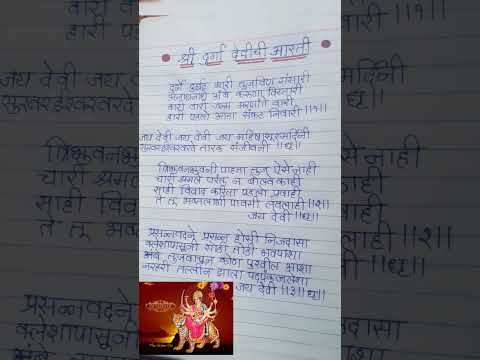 श्री दुर्गा देवीची आरती
दुर्गे दुर्घट भारी तुजविण संसारी
अनाथनाथे अंबे करुणा विस्तारी
वारी वारी जन्म मरणाते वारी
हारी पडलो आता संकट निवारी ॥१॥
जय देवी जय देवी जय महिषासुरमर्दिनी
सुरवरईश्वरवरदे तारक संजीवनी ॥धृ॥
त्रिभुवनभुवनी पाहता तुज ऐसे नाही
चारी श्रमले परंतु न बोलवे काही
साही विवाद करिता पडलो प्रवाही
ते तू भक्तालागी पावसी लवलाही ॥२॥
जय देवी ॥धृ॥
प्रसन्नवदने प्रसन्न होसी निजदासा
क्लेशापासूनी सोडी तोडी भवपाशा
अंबे तुजवाचून कोण पुरवील आशा
नरहरी तल्लीन झाला पदपंकजलेशा
जय देवी ॥३॥ ॥धृ॥